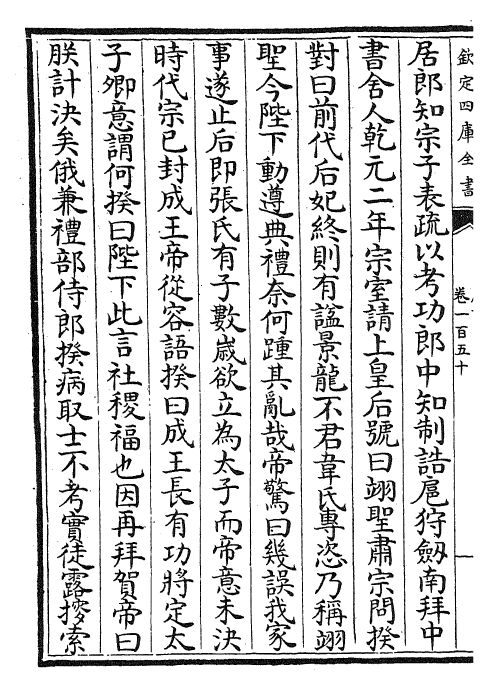 欽定四庫全書
卷一百五十
居郎知宗子表疏以考功郎中知制誥扈狩劔南拜中
書舍人乾元二年宗室請上皇后號曰翊聖肅宗問揆
對曰前代后妃終則有諡景龍不君韋氏專恣乃稱翊
聖今陛下動遵典禮奈何踵其亂哉帝驚曰幾誤我家
事遂止后即張氏有子數嵗欲立為太子而帝意未決
時代宗已封成王帝從容語揆曰成王長有功將定太
子卿意謂何揆曰陛下此言社稷福也因再拜賀帝曰
朕計決矣俄兼禮部侍郎揆病取士不考實徒露搜索